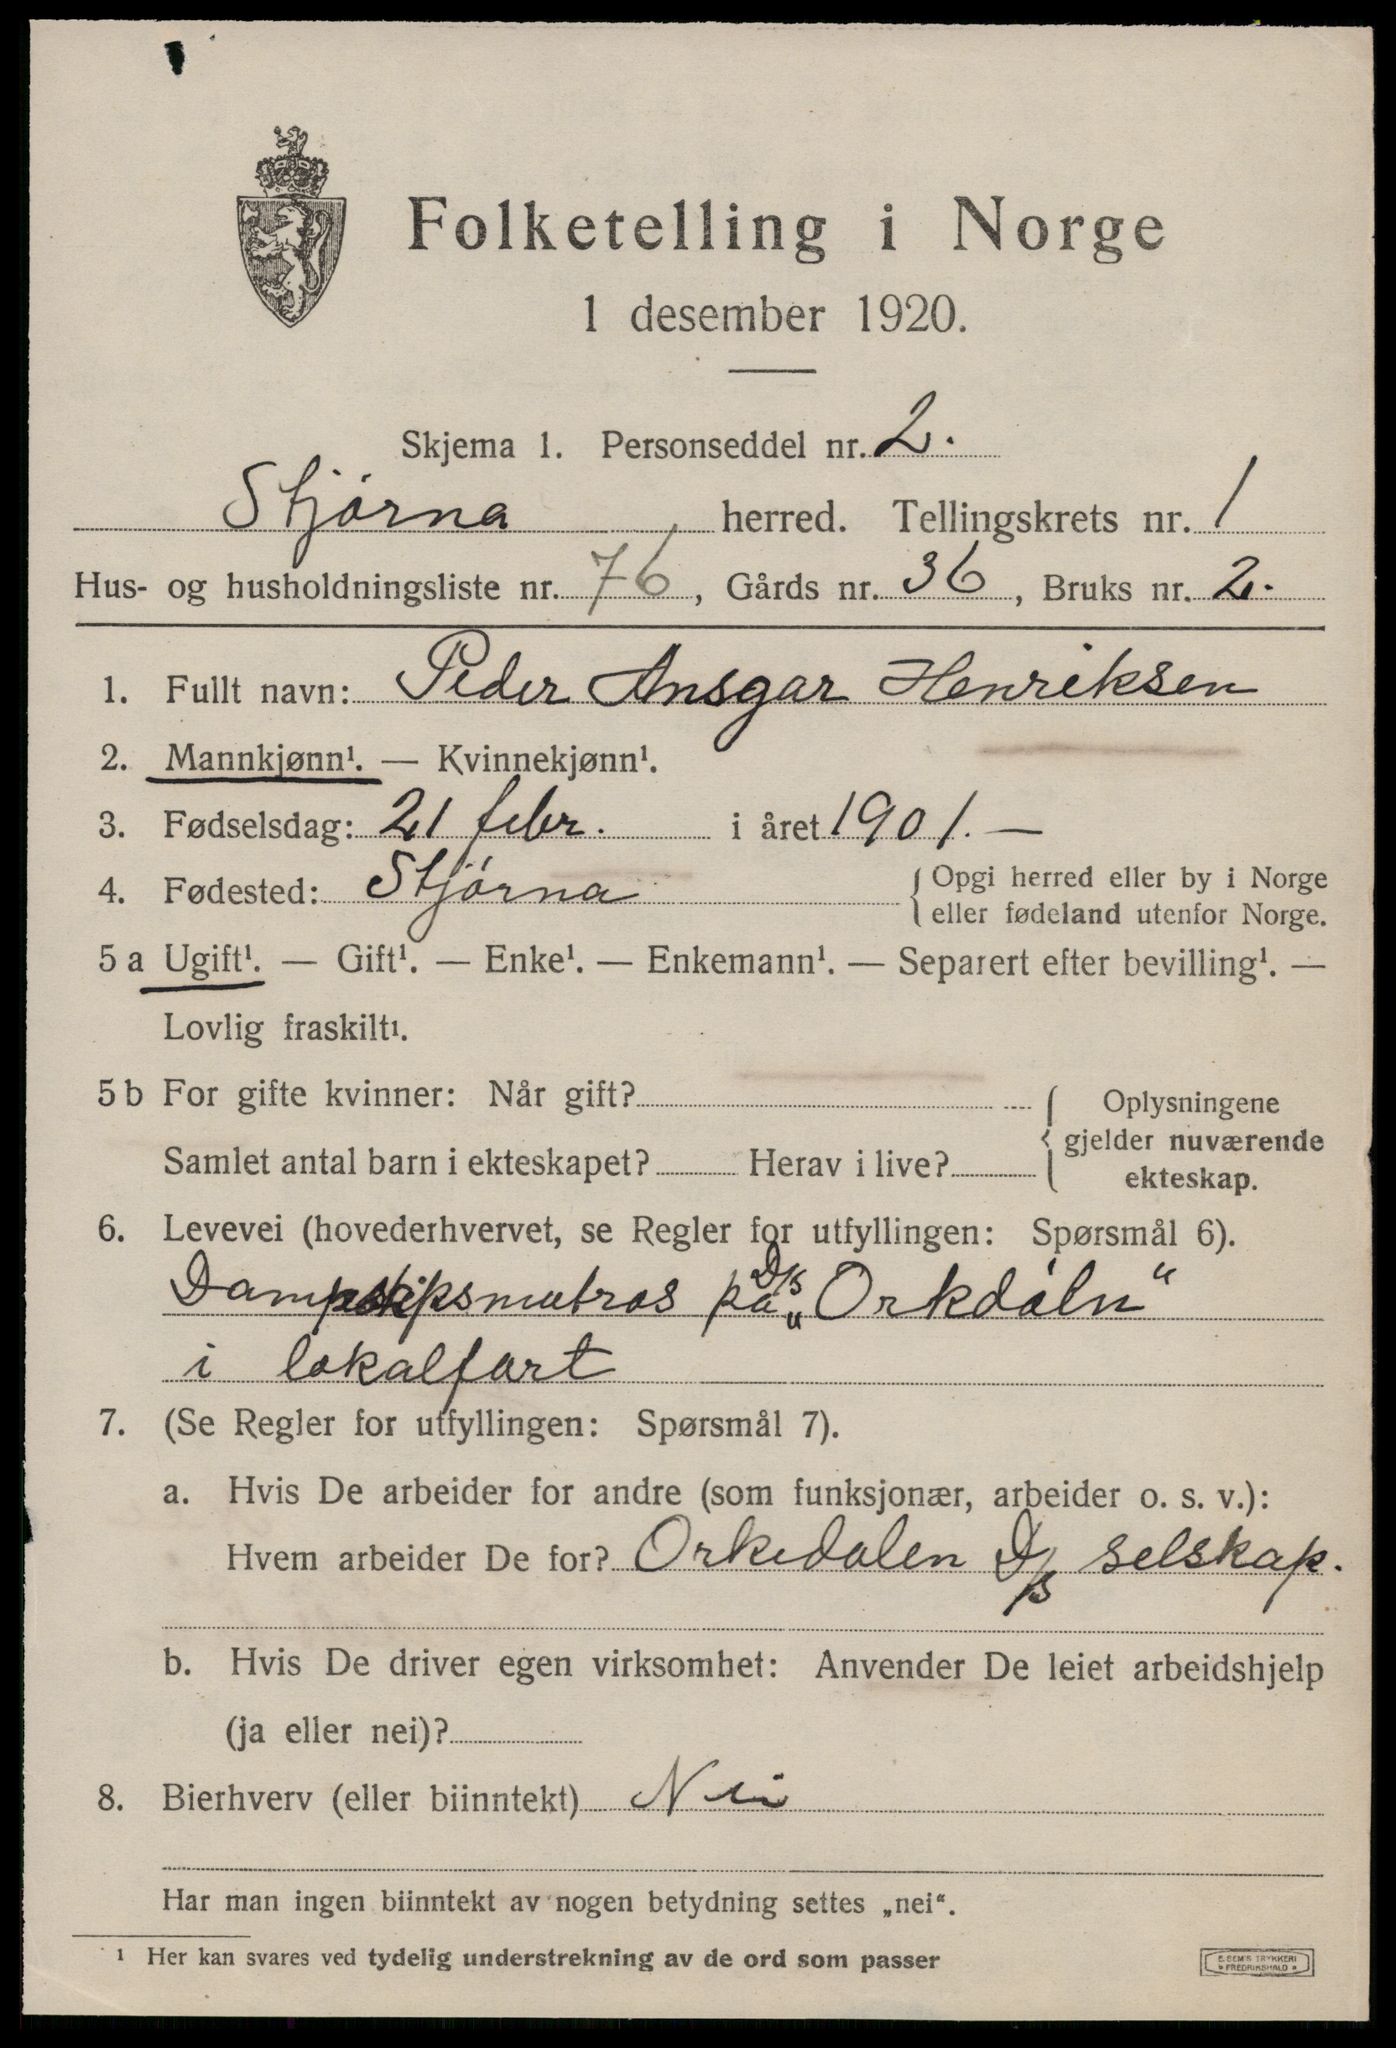 Folketelling i Norge
1 desember 1920.
Skjema 1. Personseddel nr. 2.
Stjørna herred. Tellingskrets nr. 1
Hus- og husholdningsliste nr. 76, Gårds nr. 36, Bruks nr. 2.
1. Fullt navn: Peder Ansgar Henriksen
2. Mannkjønn¹. — Kvinnekjønn¹.
3. Fødselsdag: 21 febr. i året 1901. —
4. Fødested: Stjørna { Opgi herred eller by i Norge
eller fødeland utenfor Norge.
5 a Ugift¹. — Gift¹. — Enke¹. — Enkemann¹. — Separert efter bevilling¹. —
Lovlig fraskilt¹.
5 b For gifte kvinner: Når gift? { Oplysningene
gjelder nuværende
ekteskap.
Samlet antal barn i ekteskapet? Herav i live?
6. Levevei (hovederhvervet, se Regler for utfyllingen: Spørsmål 6).
Dampskipsmatros på D/S „Orkdaln“
i lokalfart
7. (Se Regler for utfyllingen: Spørsmål 7).
a. Hvis De arbeider for andre (som funksjonær, arbeider o. s. v.):
Hvem arbeider De for? Orkedalen D/S selskap.
b. Hvis De driver egen virksomhet: Anvender De leiet arbeidshjelp
(ja eller nei)?
8. Bierhverv (eller biinntekt) Nei
Har man ingen biinntekt av nogen betydning settes „nei“.
¹ Her kan svares ved tydelig understrekning av de ord som passer
E. SEM'S TRYKKERI
FREDRIKSHALD